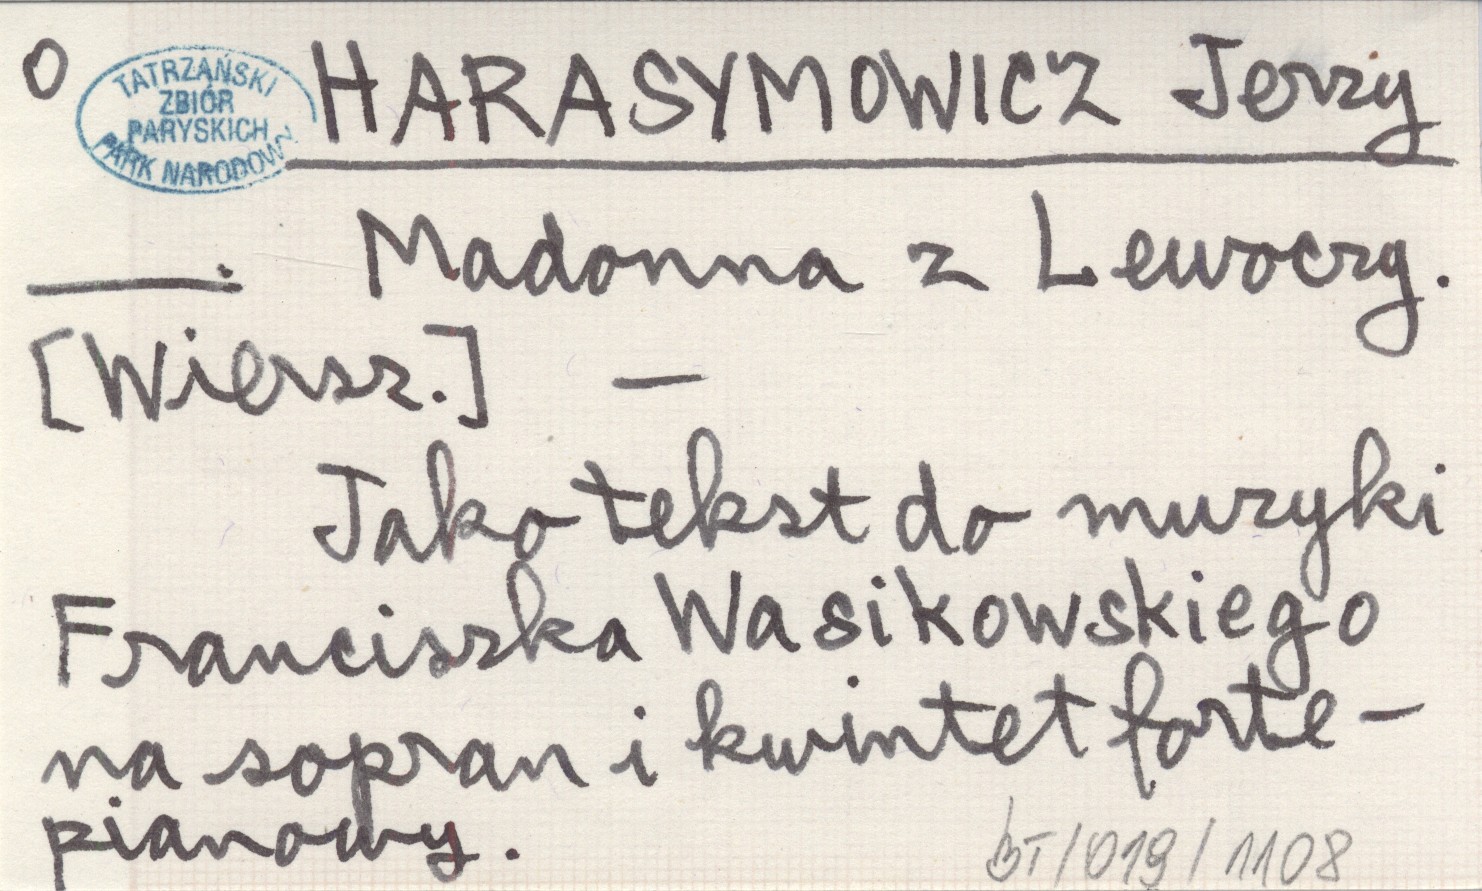 O
TATRZAŃSKI
ZBIÓR
PARYSKICH
PARK NARODOWY
HARASYMOWICZ Jerzy
——. Madonna z Lewoczy.
[Wiersz.] —
Jako tekst do muzyki
Franciszka Wasikowskiego
na sopran i kwintet forte-
pianowy.
BT/019/1108